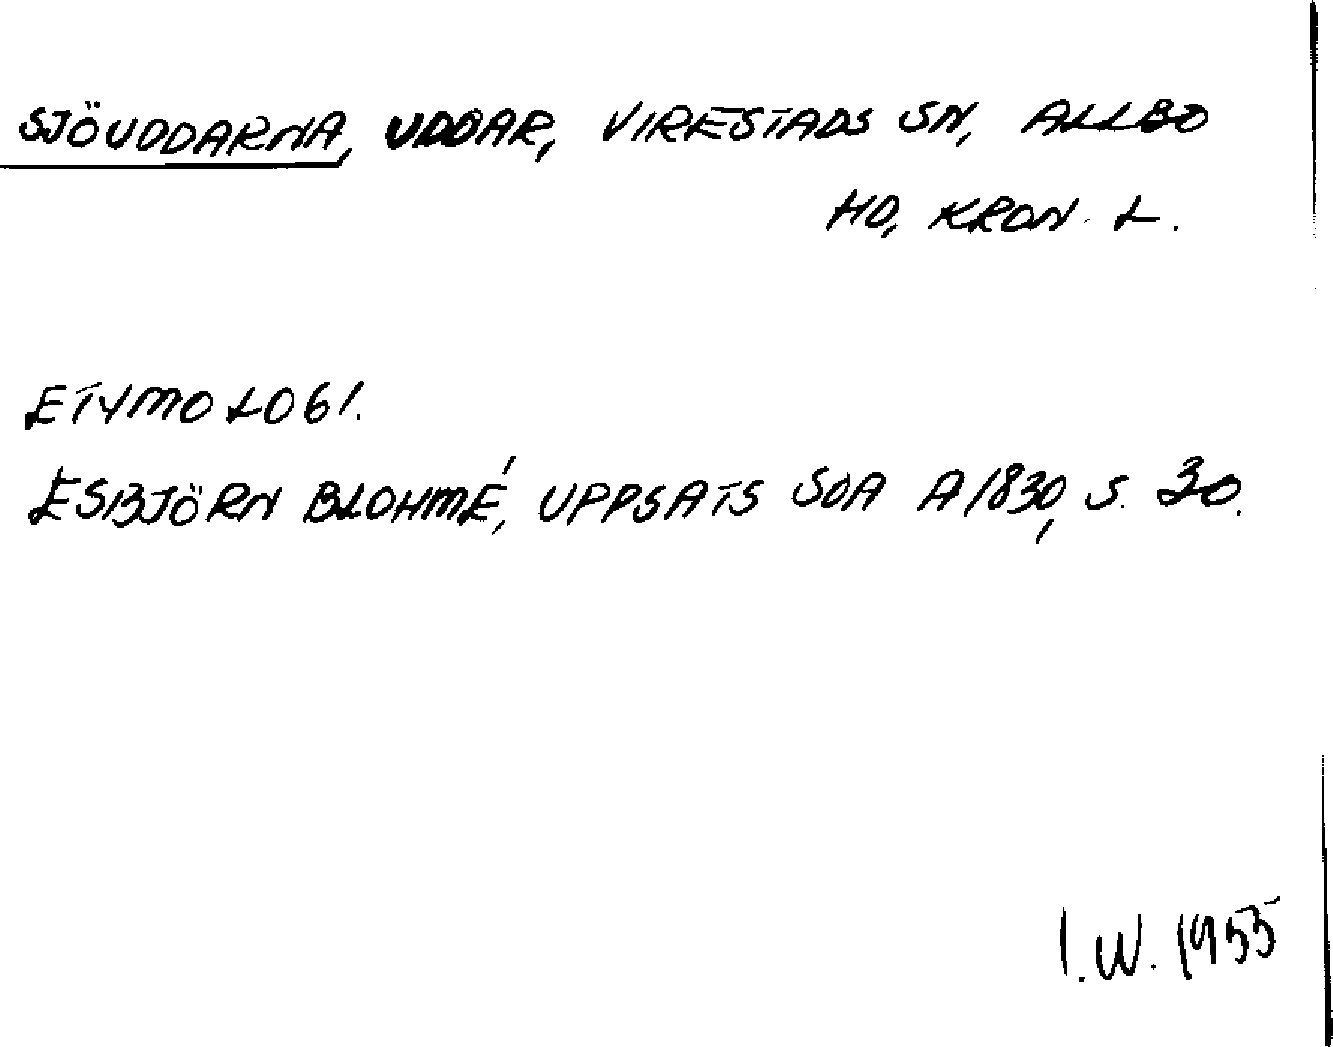 SJÖUDDARNA, UDDAR, VIRESTADS SN, ALLBO
HD, KRON. L.
ETYMOLOGI.
ESBJÖRN BLOHMÉ, UPPSATS SOA A1830, S. 30.
I.W. 1955